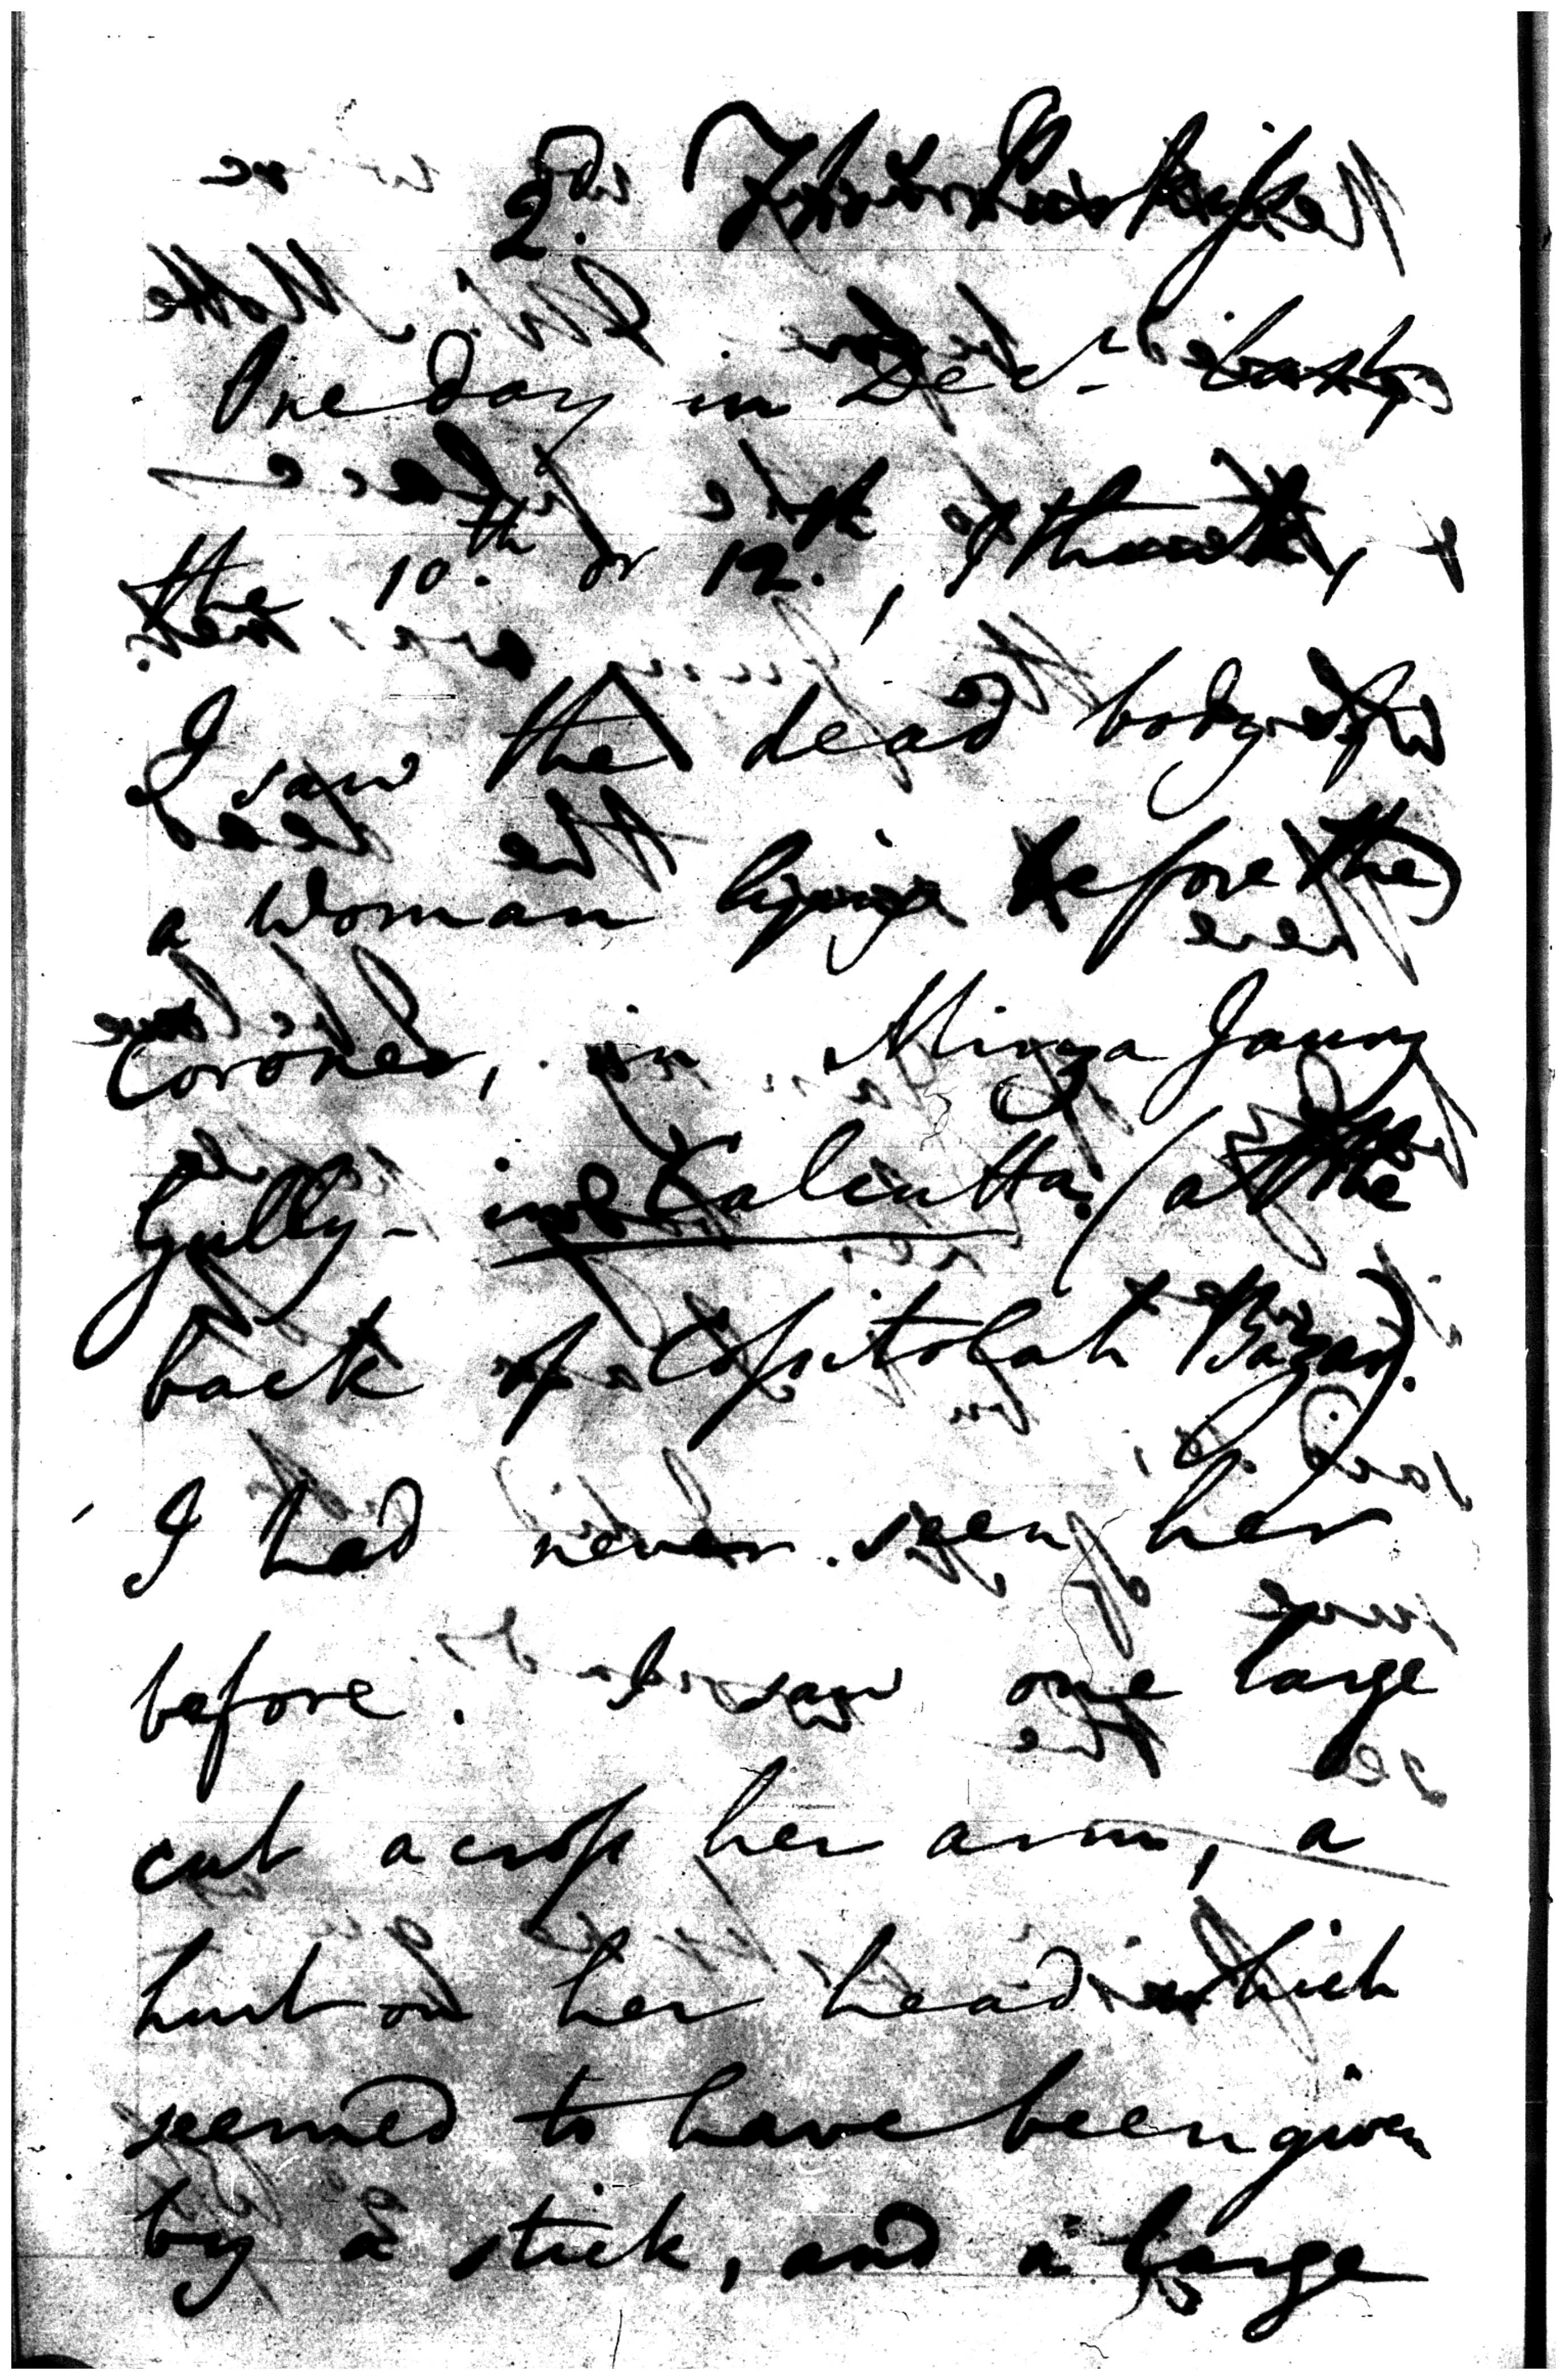 2d.
One day in Decr. last,
the 10th or 12th, I think,
I saw the dead body of
a woman lying before the
Coroner, in Mirza Jaun
Gully - in Calcutta. (at the
back of Copitolah Bazar).
I had never seen her
before. I saw one large
cut across her arm, a
hurt on her head which
seemed to have been given
by a stick, and a large